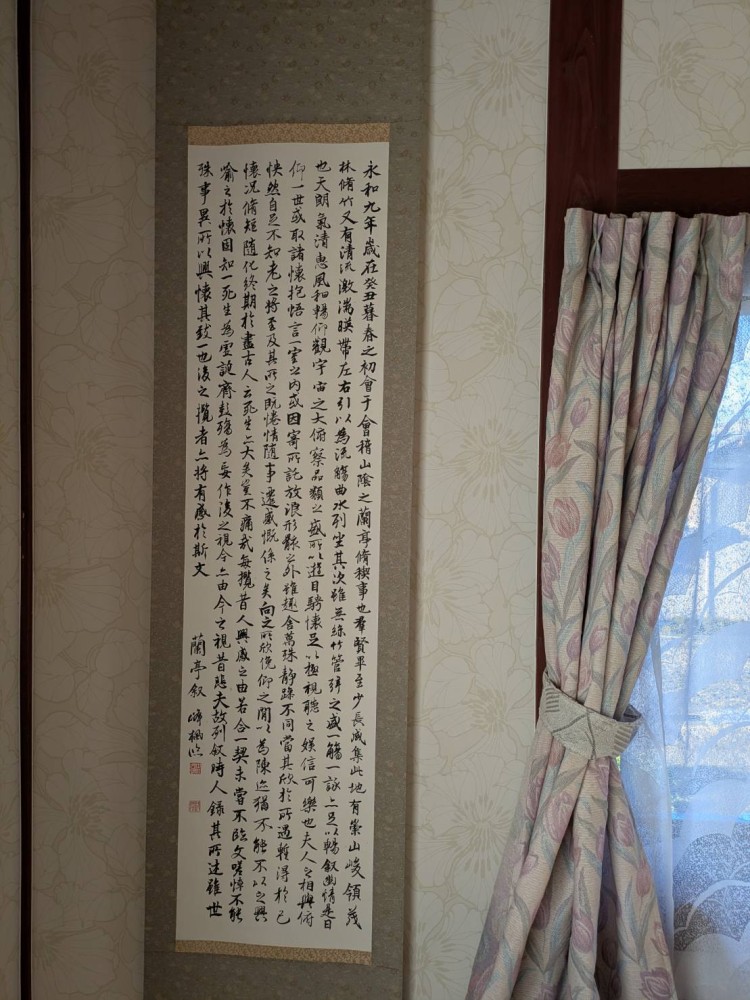 永和九年歳在癸丑暮春之初會于會稽山陰之蘭亭脩稧事也羣賢畢至少長咸集此地有崇山峻領茂
林脩竹又有清流激湍暎帶左右引以為流觴曲水列坐其次雖無絲竹管弦之盛一觴一詠亦足以暢叙幽情是日
也天朗氣清惠風和暢仰觀宇宙之大俯察品類之盛所以遊目騁懷足以極視聽之娛信可樂也夫人之相與俯
仰一世或取諸懷抱悟言一室之内或因寄所託放浪形骸之外雖趣舍萬殊静躁不同當其欣於所遇暫得於己
怏然自足不知老之將至及其所之既惓情随事遷感慨係之矣向之所欣俛仰之閒以為陳迹猶不能不以之興
懷况脩短随化終期於盡古人云死生亦大矣豈不痛哉每攬昔人興感之由若合一契未嘗不臨文嗟悼不能
喻之於懷固知一死生為虚誕齊彭殤為妄作後之視今亦由今之視昔悲夫故列叙時人録其所述雖世
殊事異所以興懷其致一也後之攬者亦將有感於斯文
蘭亭叙